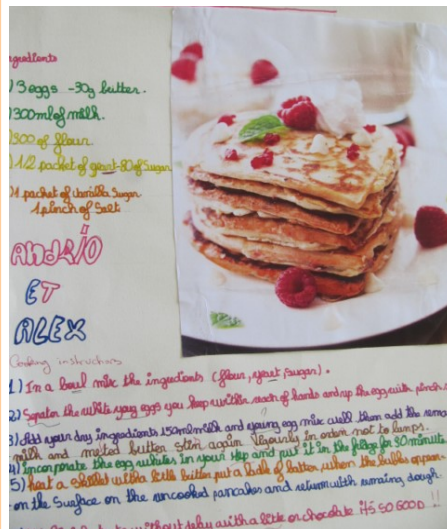 ngredients
3 eggs - 30g butter.
300ml of milk.
300 of flour
1/2 packet of yeast - 80 of Sugar
01 packet of Vanilla Sugar
1 pinch of Salt
ANDRIO
ET
ALEX
Cooking instructions
1) In a bowl mix the ingredients (flour, yeast, sugar).
2) the white egg eggs you keep within reach of hands and the egg with pinch
3) Add your dry ingredients 150ml milk and egg mix well them add the
milk and melted butter stir again in order not to lumps.
4) Incorporate the egg whites in your step and put it in the fridge for 30 minute
5) heat a with a little butter put a of batter, when the bubbles appear
on the Surface on the uncooked pancakes and return with remaing dough.
without delay with a little or chocolate it's SO GOOD !!